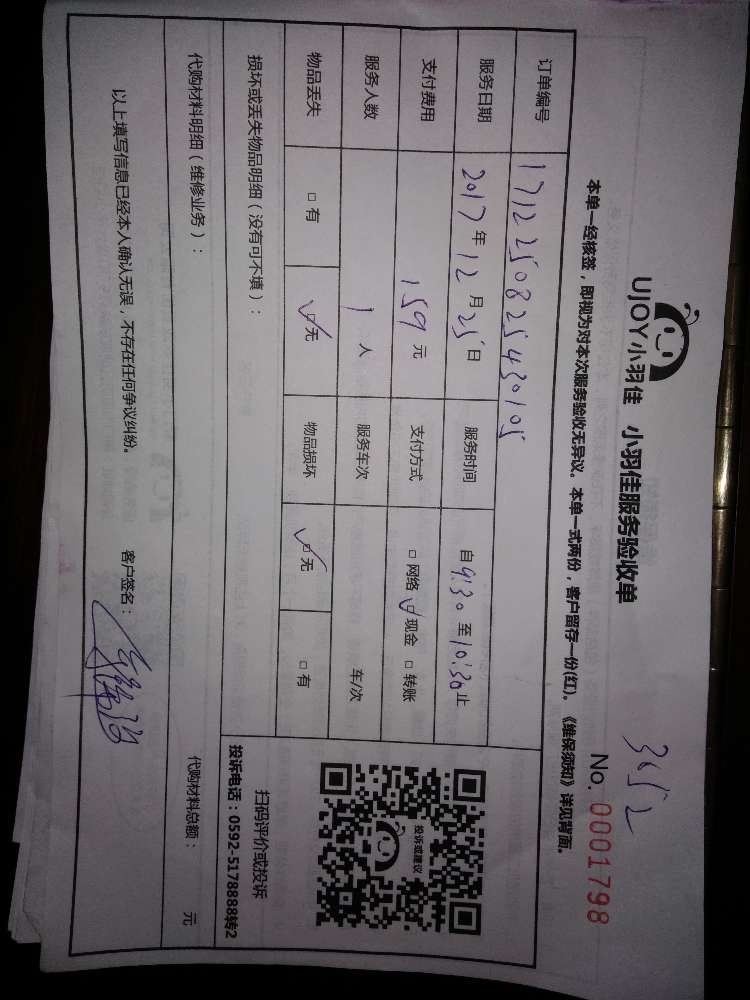 3652
UJOY小羽佳 小羽佳服务验收单
No. 0001798
本单一经核签，即视为对本次服务验收无异议。本单一式两份，客户留存一份(红)。《维保须知》详见背面。
订单编号 1712250825430105
服务日期 2017年12月25日 服务时间 自9:30至10:30止
支付费用 159元 支付方式 □网络 ☑现金 □转账
服务人数 1人 服务车次 车/次
物品丢失 □有 ☑无 物品损坏 ☑无 □有
投诉或建议
扫码评价或投诉
投诉电话：0592-5178888转2
损坏或丢失物品明细（没有可不填）：
代购材料明细（维修业务）： 代购材料总额： 元
以上填写信息已经本人确认无误，不存在任何争议纠纷。 客户签名：